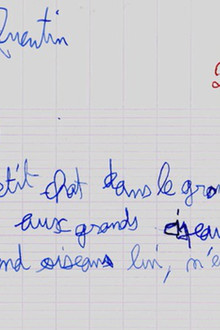 Quentin
etit chat dans le gran
aux grands oiseau
nd oiseau lui, n'e